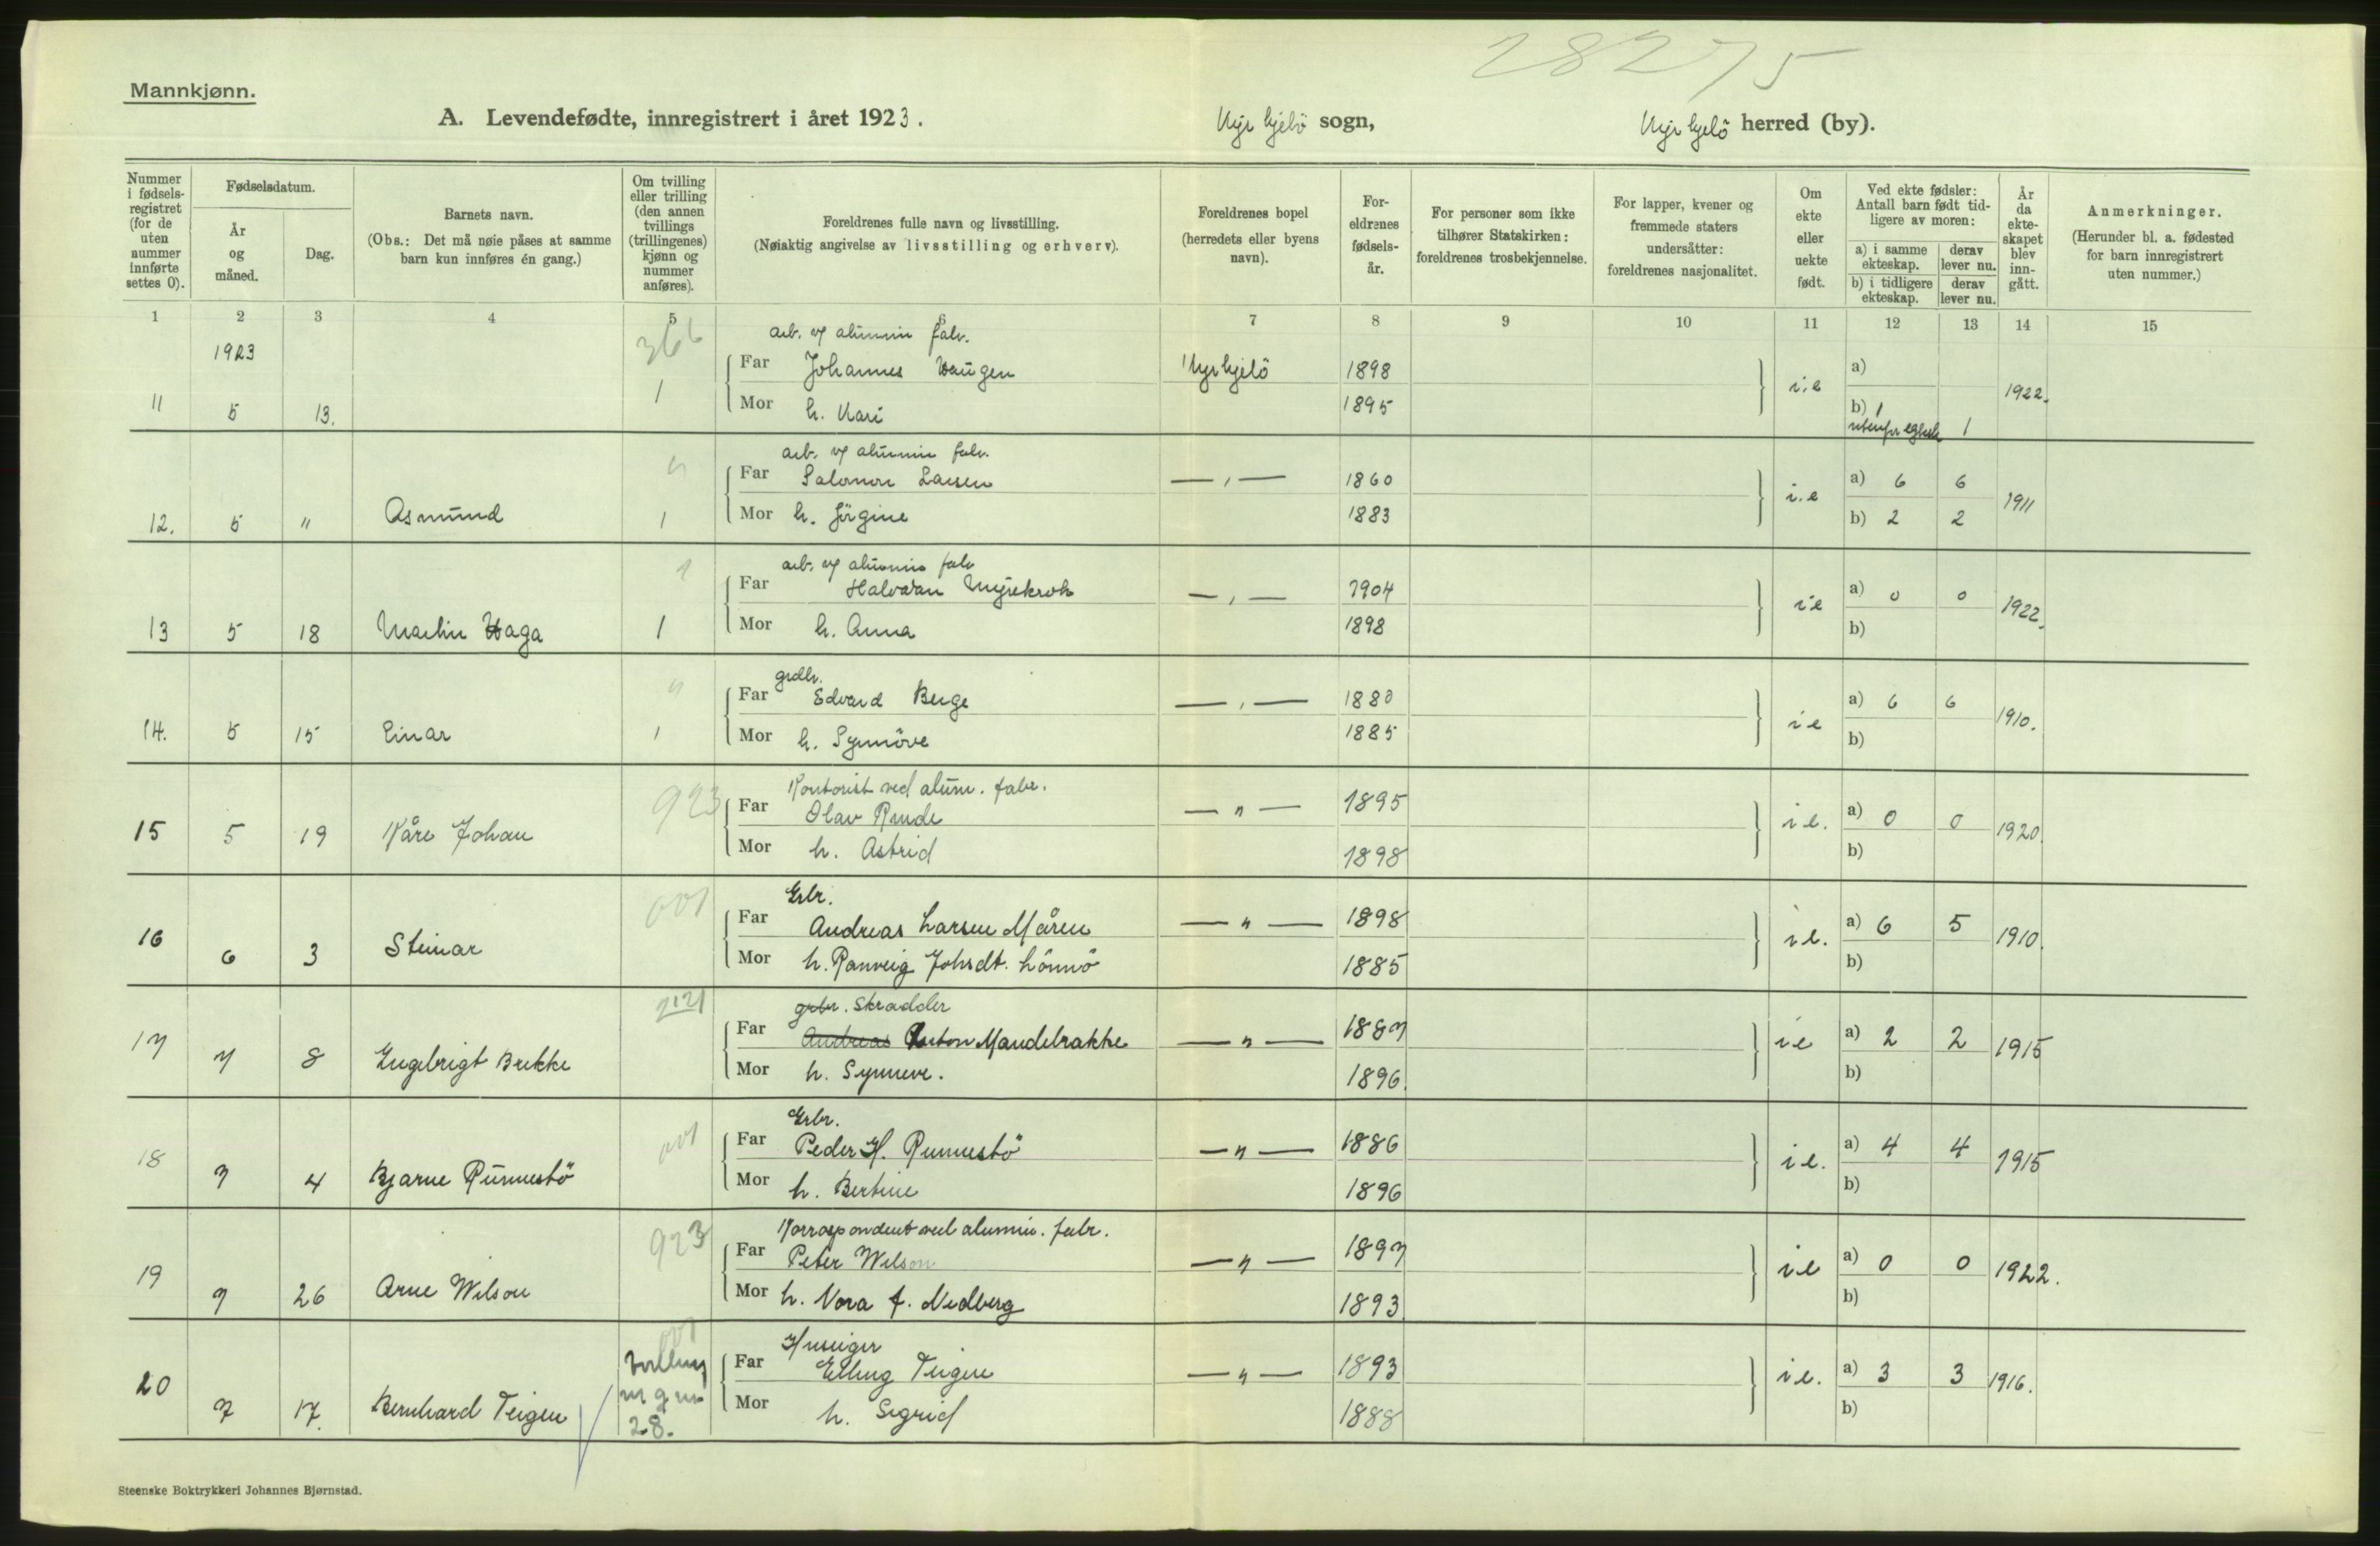 28275
Mannkjønn.
A. Levendefødte, innregistrert i året 1923. Kyrkjebö sogn, Kyrkjebö herred (by).
Nummer i fødsels-registret (for de uten nummer innførte settes 0).
Fødselsdatum.
År og måned.
Dag.
Barnets navn.
(Obs.: Det må nøie påses at samme barn kun innføres én gang.)
Om tvilling eller trilling (den annen tvillings (trillingenes) kjønn og nummer anføres).
Foreldrenes fulle navn og livsstilling.
(Nøiaktig angivelse av livsstilling og erhverv).
Foreldrenes bopel (herredets eller byens navn).
For-eldrenes fødsels-år.
For personer som ikke tilhører Statskirken: foreldrenes trosbekjennelse.
For lapper, kvener og fremmede staters undersåtter: foreldrenes nasjonalitet.
Om ekte eller uekte født.
Ved ekte fødsler: Antall barn født tid-ligere av moren:
a) i samme ekteskap.
derav lever nu.
b) i tidligere ekteskap.
derav lever nu.
År da ekte-skapet blev inn-gått.
Anmerkninger.
(Herunder bl. a. fødested for barn innregistrert uten nummer.)
1 2 3 4 5 6 7 8 9 10 11 12 13 14 15
1923 366 arb. v/ alumin fabr.
Far Johannes Haugen Kyrkjebö 1898 i.e a) 1922.
11 5 13. 1 Mor h. Kari 1895 b) 1
utenfor egtesk 1
arb. v/ alumin fabr.
" Far Salomon Larsen — " — 1860 i.e a) 6 6 1911
12. 5 " Asmund 1 Mor h. Jörgine 1883 b) 2 2
arb. v/ alumin fabr
Far Halvdan Myrekrok — " — 1904 i e a) 0 0 1922.
13 5 18 Martin Haga 1 Mor h. Anna 1898 b)
grdbr.
" Far Edvard Berge — " — 1880 i e a) 6 6 1910.
14. 5 15 Einar 1 Mor h. Synnöve 1885 b)
Kontorist ved alum. fabr.
923 Far Olav Runde — " — 1895 i e. a) 0 0 1920.
15 5 19 Kåre Johan Mor h. Astrid 1898 b)
Grbr.
001 Far Andreas Larsen Måren — " — 1898 i e. a) 6 5 1910.
16 6 3 Steinar Mor h. Ranveig Johsdt. Lönnö 1885 b)
2121 grbr. Skradder
Far Andreas Anton Mandelrakke — " — 1887 i e a) 2 2 1915
17 7 8 Engebrigt Brekke Mor h. Synneve. 1896. b)
Grbr.
001 Far Peder H. Runnestö — " — 1886 i e. a) 4 4 1915
18 7 4 Bjarne Runnestö Mor h. Bertine 1896 b)
Korrespondent ved alumin. fabr.
923 Far Peter Wilson — " — 1897 i e a) 0 0 1922.
19 7 26 Arne Wilson Mor h. Nora f. Nedberg 1893. b)
001 Huseiger
tvilling Far Elling Teigen — " — 1893 i e. a) 3 3 1916.
20 7 17. Bernhard Teigen m g nr 28. Mor h. Sigrid 1888 b)
Steenske Boktrykkeri Johannes Bjørnstad.